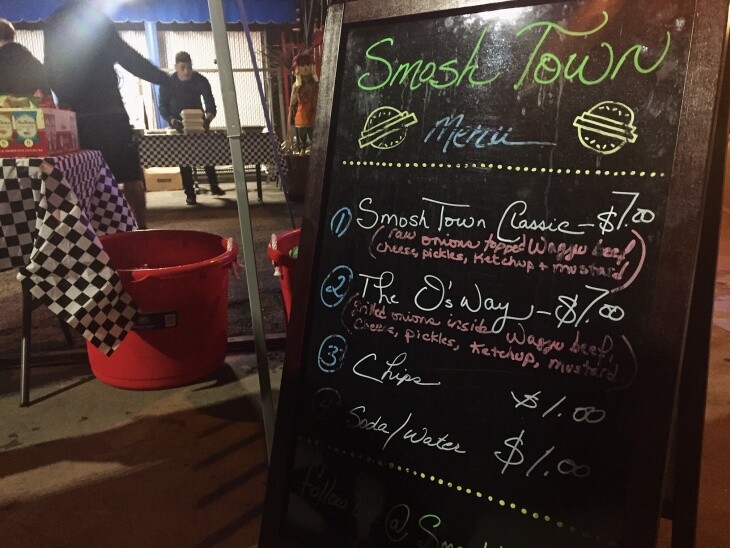 Smash Town
Menu
1 Smash Town Classic - $7.00
(raw onions topped Wagyu beef,
cheese, pickles, Ketchup + mustard)
2 The O's Way - $7.00
(Grilled onions inside Wagyu beef,
Cheese, pickles, Ketchup, mustard)
3 Chips $1.00
4 Soda/Water $1.00
Follow @ Sm